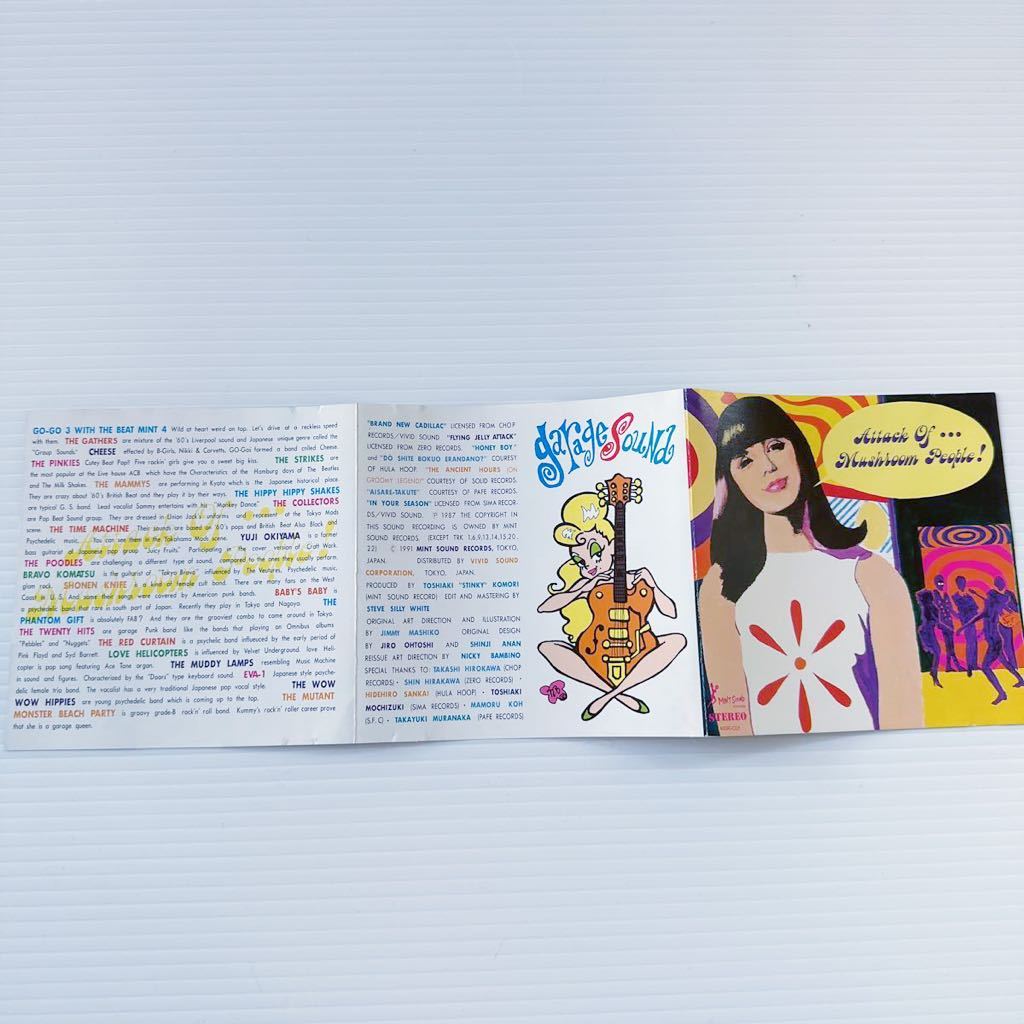 GO-GO 3 WITH THE BEAT MINT 4 Wild at heart weird on top. Let's drive at a reckless speed
with them. THE GATHERS are mixture of the '60's Liverpool sound and Japanese unique genre called the
"Group Sounds." CHEESE effected by B-Girls, Nikki & Corvetts. GO-Goi formed a band colled Cheese.
THE PINKIES Cutey Beat Pop! Five rockin' girls give you a sweet big kiss. THE STRIKES are
the most popular at the Live house ACB which have the Characteristics of the Hamburg days of The Beatles
and The Milk Shakes. THE MAMMYS are performing in Kyoto which is the Japanese historical place.
They are crazy about '60's British Beat and they play it by their ways. THE HIPPY HIPPY SHAKES
are typical G. S. band. Lead vocalist Sammy entertains with his "Monkey Dance". THE COLLECTORS
are Pop Beat Sound group. They are dressed in Union Jack's uniforms and represent at the Tokyo Mods
scene. THE TIME MACHINE Their sounds are based on 60's pops and British Beat Also Black and
Psychedelic music. You can meet them at Yokohama Mods scene. YUJI OKIYAMA is a former
bass guitarist of Japanese Techno Pop "Juicy Fruits". Participating in this cover version of Craft Wark.
THE POODLES are challenging a different type of sound, compared to the ones they usually perform.
BRAVO KOMATSU is the guitarist of "Tokyo Bravo" influenced by The Ventures, Psychedelic music,
glam rock. SHONEN KNIFE is known as female cult band. There are many fans on the West
Coast of U.S.A. And some their songs were covered by American punk bands. BABY'S BABY is
a psychedelic band from Gifu in south part of Japan. Recently they play in Tokyo and Nagoya. THE
PHANTOM GIFT is absolutely FAB? And they are the grooviest combo to come around in Tokyo.
THE TWENTY HITS are garage Punk band like the bands that playing on Omnibus albums
"Pebbles" and "Nuggets". THE RED CURTAIN is a psychelic band influenced by the early period of
Pink Floyd and Syd Barrett. LOVE HELICOPTERS is influenced by Velvet Underground. love Heli-
copter is pop song featuring Ace Tone organ. THE MUDDY LAMPS resembling Music Machine
in sound and figures. Characterized by the "Doors" type keyboard sound. EVA-1 Japanese style psyche-
delic female trio band. The vocalist has a very traditional Japanese pop vocal style. THE WOW
WOW HIPPIES are young psychedelic band which is coming up to the top. THE MUTANT
MONSTER BEACH PARTY is groovy grade-B rock'n' roll band. Kummy's rock'n' roller career prove
that she is a garage queen.
"BRAND NEW CADILLAC" LICENSED FROM CHOP
RECORDS/VIVID SOUND "FLYING JELLY ATTACK"
LICENSED FROM ZERO RECORDS. "HONEY BOY"
and "DO SHITE BOKUO ERANDANO?" COURESY
OF HULA HOOP. "THE ANCIENT HOURS (ON
GROOMY LEGEND)" COURTESY OF SOLID RECORDS.
"AISARE-TAKUTE" COURTESY OF PAFE RECORDS.
"IN YOUR SEASON" LICENSED FROM SIMA-RECOR-
DS/VIVID SOUND. ℗ 1987 THE COPYRIGHT IN
THIS SOUND RECORDING IS OWNED BY MINT
SOUND RECORDS. (EXCEPT TRK 1.6,9,13,14,15,20.
22) © 1991 MINT SOUND RECORDS, TOKYO,
JAPAN. DISTRIBUTED BY VIVID SOUND
CORPORATION, TOKYO, JAPAN.
PRODUCED BY TOSHIAKI "STINKY" KOMORI
(MINT SOUND RECORD) EDIT AND MASTERING BY
STEVE SILLY WHITE
ORIGINAL ART DIRECTION AND ILLUSTRATION
BY JIMMY MASHIKO ORIGINAL DESIGN
BY JIRO OHTOSHI AND SHINJI ANAN
REISSUE ART DIRECTION BY NICKY BAMBINO
SPECIAL THANKS TO: TAKASHI HIROKAWA (CHOP
RECORDS) · SHIN HIRAKAWA (ZERO RECORDS) ·
HIDEHIRO SANKAI (HULA HOOP) · TOSHIAKI
MOCHIZUKI (SIMA RECORDS) · MAMORU KOH
(S.F.C) · TAKAYUKI MURANAKA (PAFE RECORDS)
garage Sound
Attack Of ...
Mushroom People!
MINT SOUND
STEREO